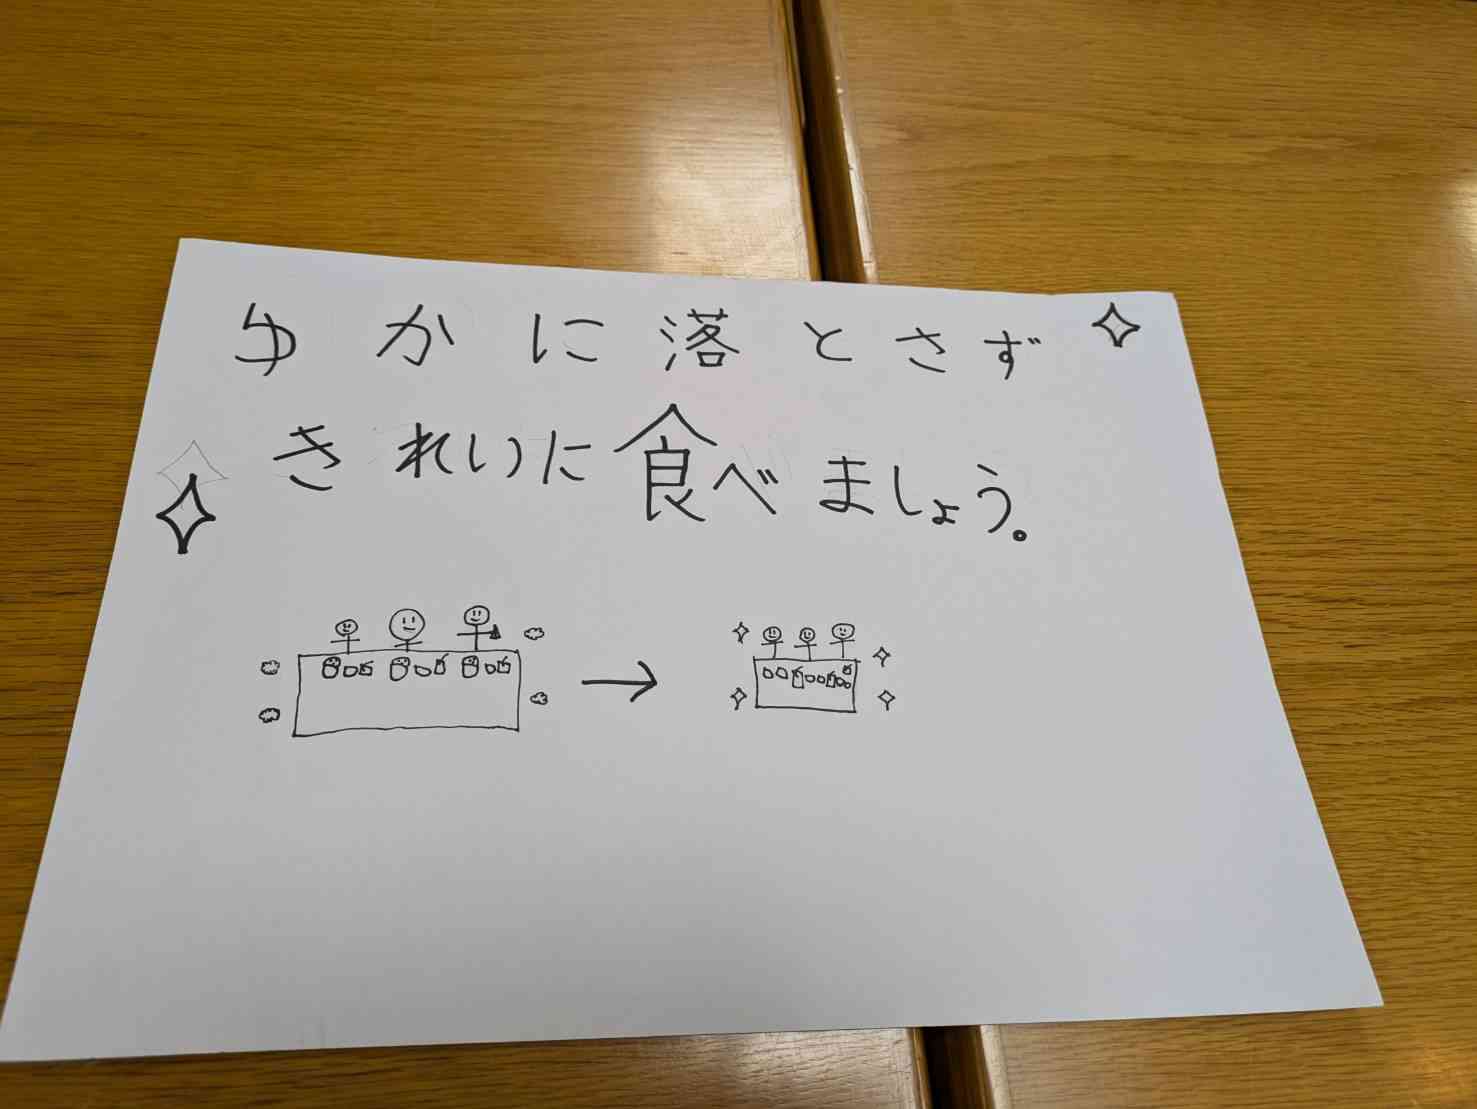 ゆかに落とさず
きれいに食べましょう。